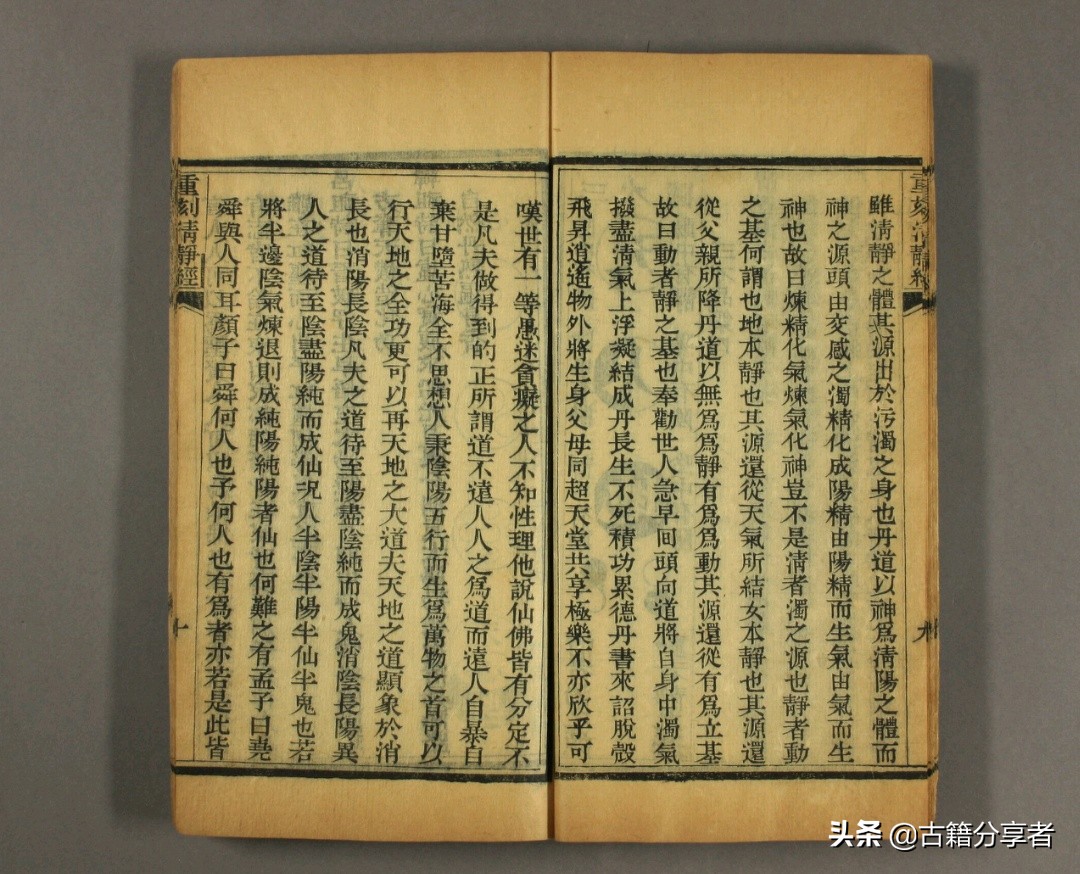 重刻清靜經
雖清靜之體其源出於污濁之身也丹道以神爲清陽之體而
神之源頭由交感之濁精化成陽精由陽精而生氣由氣而生
神也故曰煉精化氣煉氣化神豈不是清者濁之源也靜者動
之基何謂也地本靜也其源還從天氣所結女本靜也其源還
從父親所降丹道以無爲爲靜有爲爲動其源還從有爲立基
故曰動者靜之基也奉勸世人急早回頭向道將自身中濁氣
撥盡清氣上浮凝結成丹長生不死積功累德丹書來詔脫殼
飛昇逍遙物外將生身父母同超天堂共享極樂不亦欣乎可
九
嘆世有一等愚迷貪癡之人不知性理他說仙佛皆有分定不
是凡夫做得到的正所謂道不遠人人之爲道而遠人自暴自
棄甘墮苦海全不思想人秉陰陽五行而生爲萬物之首可以
行天地之全功更可以再天地之大道夫天地之道顯象於消
長也消陽長陰凡夫之道待至陽盡陰純而成鬼消陰長陽異
人之道待至陰盡陽純而成仙況人半陰半陽半仙半鬼也若
將半邊陰氣煉退則成純陽純陽者仙也何難之有孟子曰堯
舜與人同耳顏子曰舜何人也予何人也有爲者亦若是此皆
重刻清靜經
十
头条 @古籍分享者